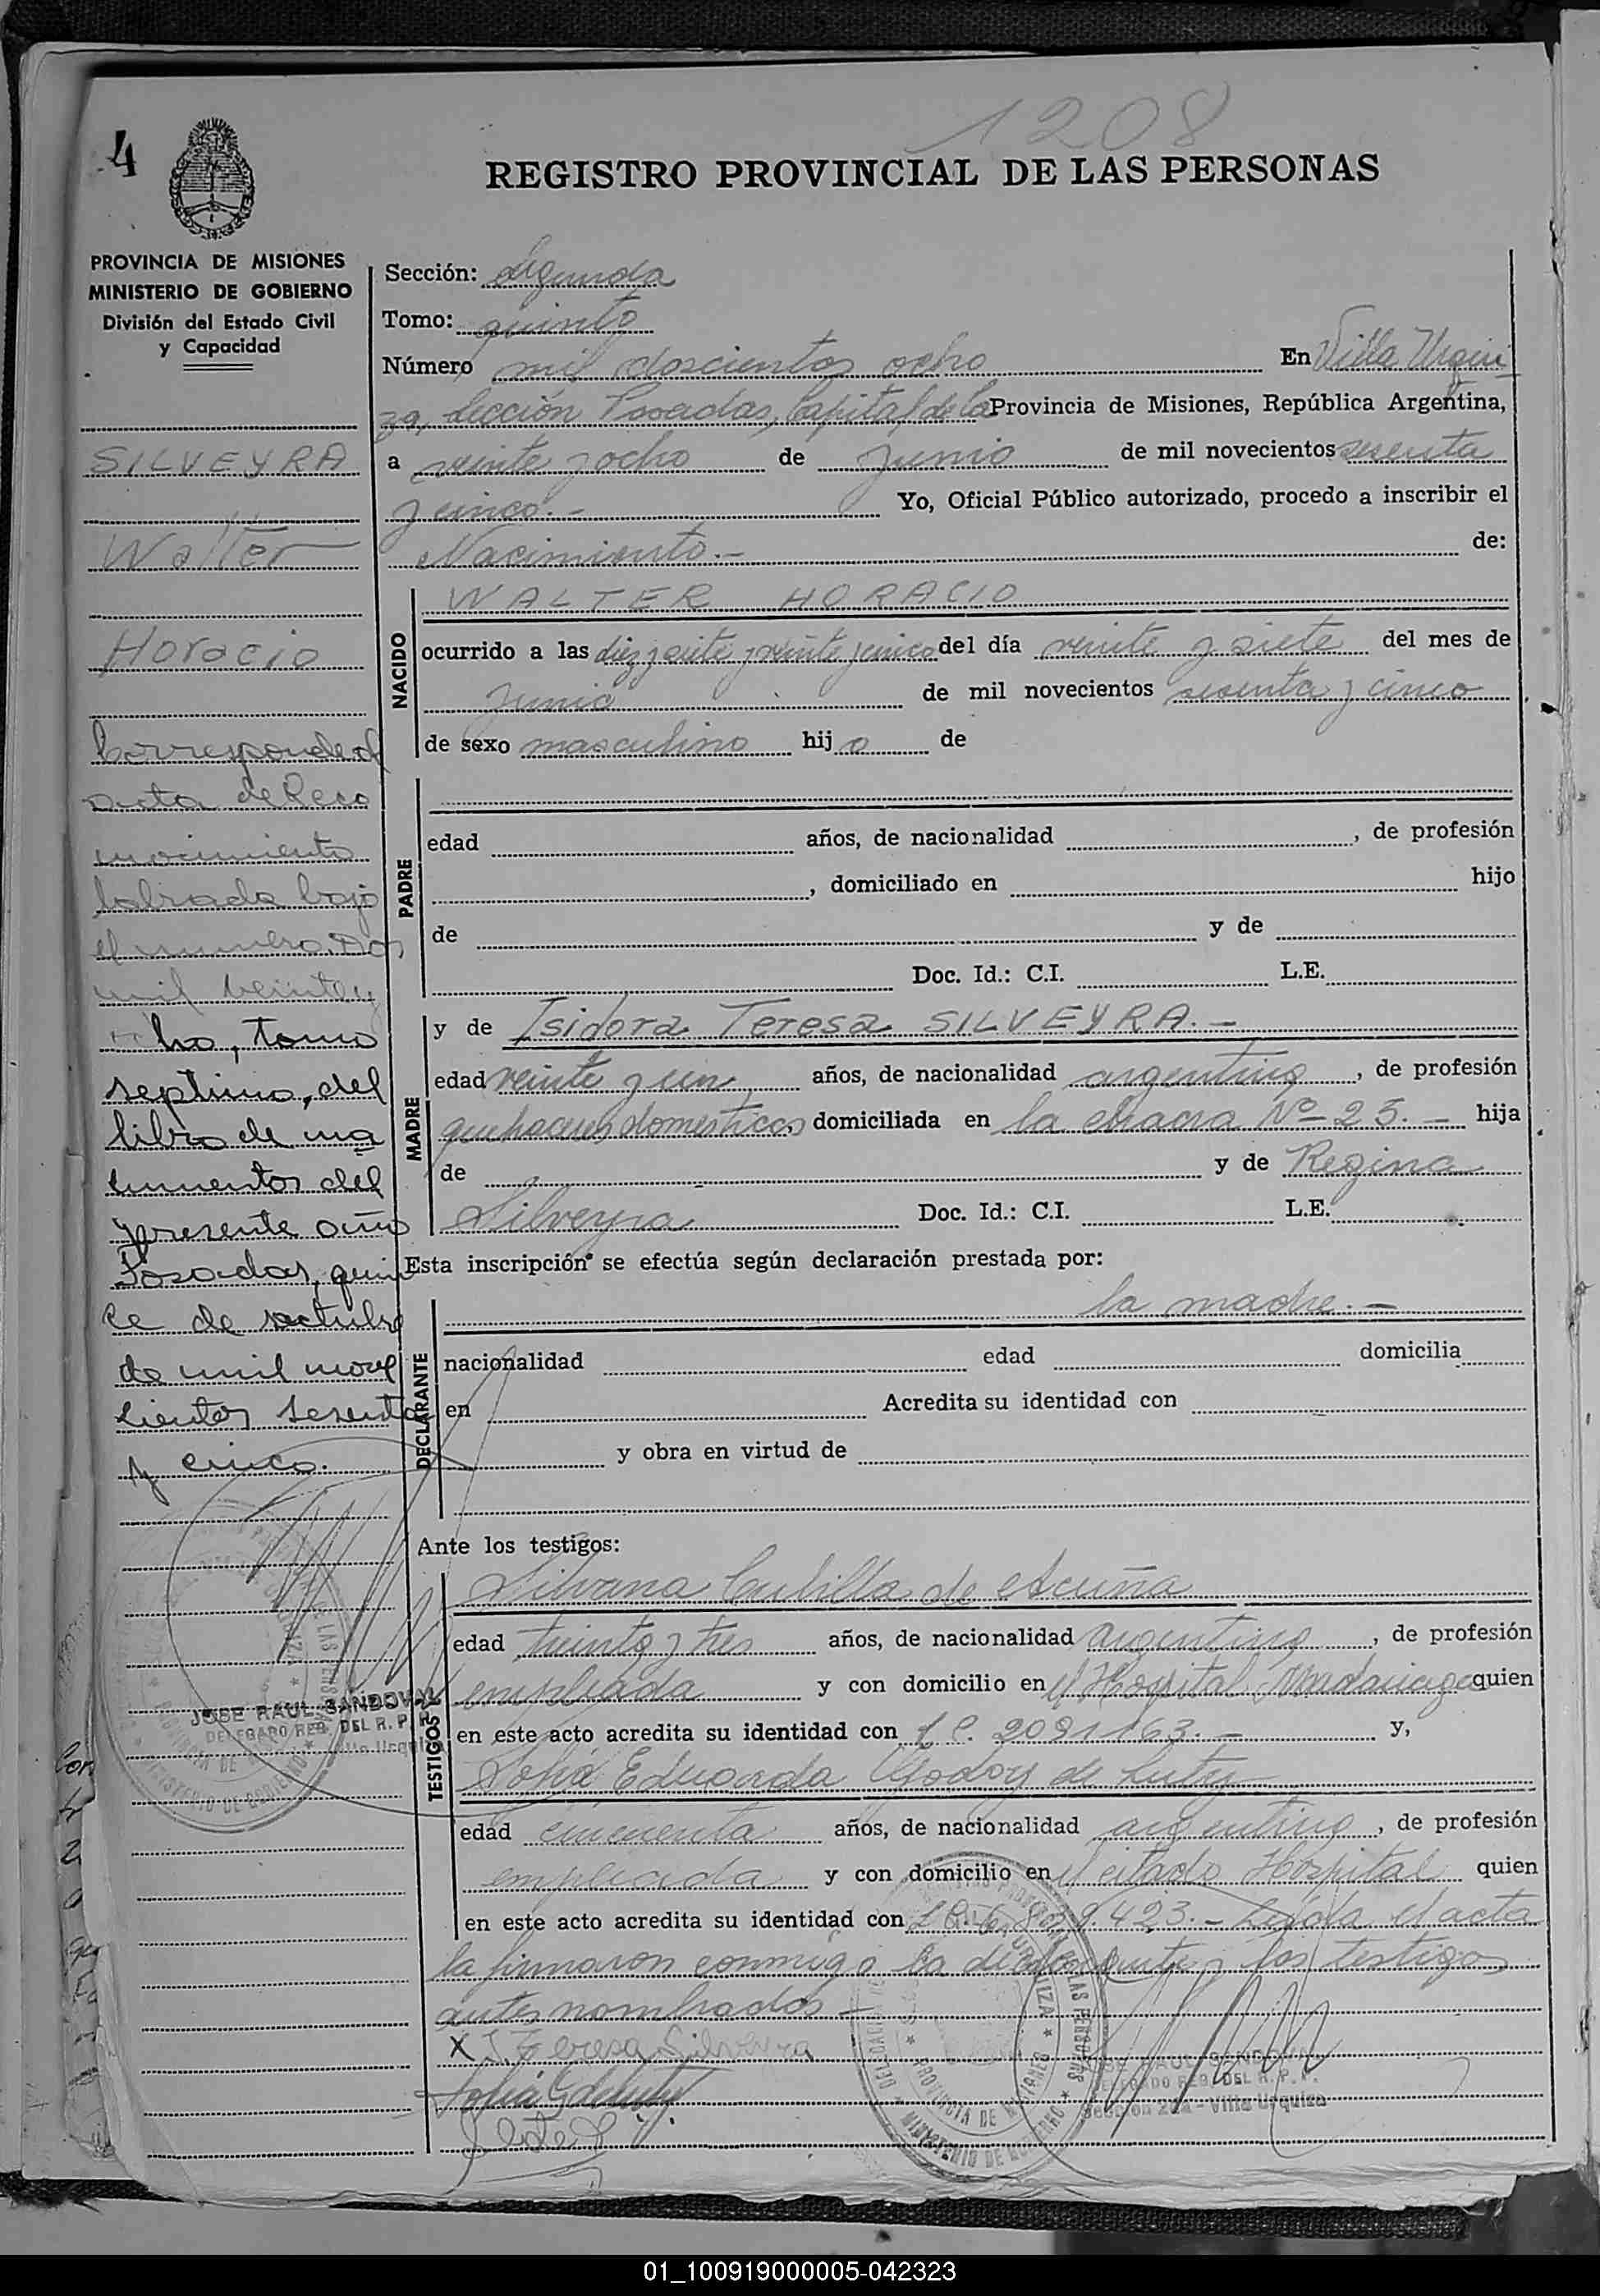 1208
4
REGISTRO PROVINCIAL DE LAS PERSONAS
PROVINCIA DE MISIONES
MINISTERIO DE GOBIERNO
División del Estado Civil
y Capacidad
SILVEYRA
Walter
Horacio
Corresponde al
acta de Reco
nocimiento
labrada bajo
el numero Dos
mil veinte y
ho, tomo
septimo, del
libro de na
cimientos del
presente año
Posadas, quin
ce de octubre
de mil nove
cientos sesenta
y cinco.
JOSE RAUL SANDOVAL
DELEGADO REG. DEL R. P. P.
Sección: Segunda
Tomo: quinto
Número mil doscientos ocho En Villa Urqui
za, Sección Posadas, Capital de la Provincia de Misiones, República Argentina,
a veinte y ocho de Junio de mil novecientos sesenta
y cinco.- Yo, Oficial Público autorizado, procedo a inscribir el
Nacimiento.- de:
NACIDO
WALTER HORACIO
ocurrido a las diez y siete y veinte y cinco del día veinte y siete del mes de
Junio de mil novecientos sesenta y cinco
de sexo masculino hijo de
PADRE
edad años, de nacionalidad , de profesión
, domiciliado en hijo
de y de
Doc. Id.: C.I. L.E.
MADRE
y de Isidora Teresa SILVEYRA.-
edad veinte y un años, de nacionalidad argentina, de profesión
quehaceres domesticos domiciliada en la chacra Nº 25.- hija
de y de Regina
Silveyra Doc. Id.: C.I. L.E.
Esta inscripción se efectúa según declaración prestada por:
DECLARANTE
la madre.-
nacionalidad edad domicilia
en Acredita su identidad con
y obra en virtud de
Ante los testigos:
TESTIGOS
Silvana Cubilla de Acuña
edad treinta y tres años, de nacionalidad argentina, de profesión
empleada y con domicilio en el Hospital Madariaga quien
en este acto acredita su identidad con L C. 2091163.- y,
Sofia Eduarda Godoy de Lutz
edad cincuenta años, de nacionalidad argentina, de profesión
empleada y con domicilio en el citado Hospital quien
en este acto acredita su identidad con L C. 423.- Leída el acta
la firmaron conmigo la declarante y los testigos
antes nombrados.-
X I. Teresa Silveyra
JOSE RAUL SANDOVAL
DELEGADO REG. DEL R. P. P.
Sección 2da - Villa Urquiza
01_100919000005-042323